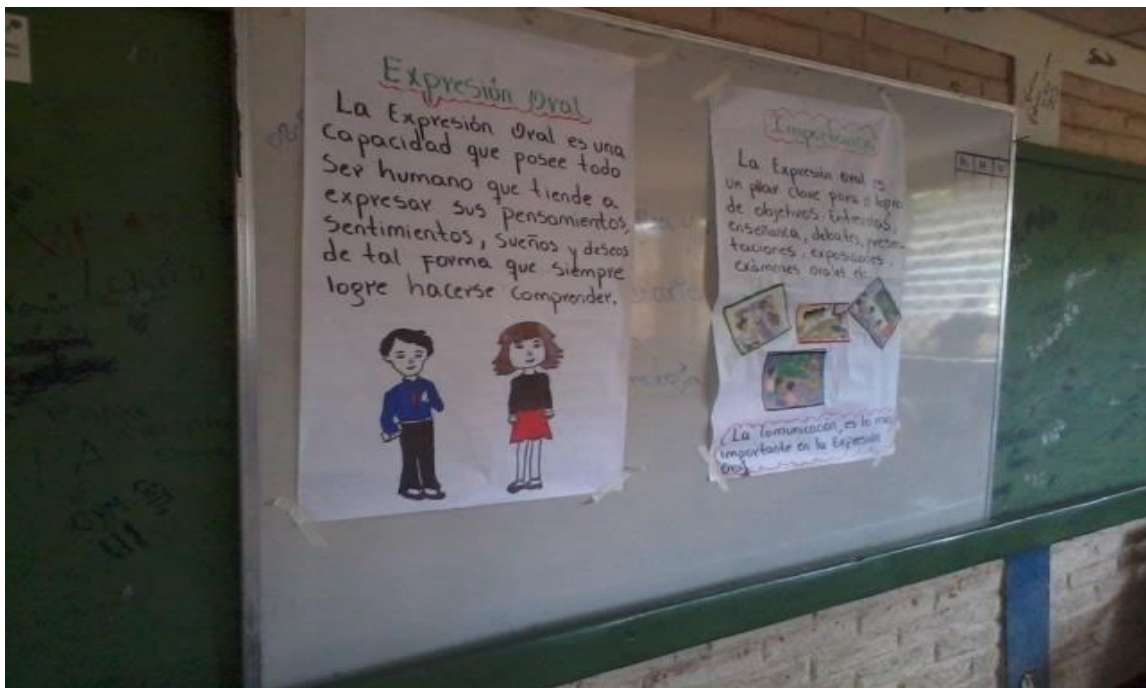 Expresión Oral
La Expresión Oral es una
capacidad que posee todo
ser humano que tiende a
expresar sus pensamientos,
sentimientos, sueños y deseos
de tal forma que siempre
logre hacerse comprender.
Importancia
La Expresión oral es
un pilar clave para o logro
de objetivos. Entrevistas,
enseñanza, debates, presen-
taciones, exposiciones,
exámenes orales etc.
La Comunicación, es lo
importante en la Expresión